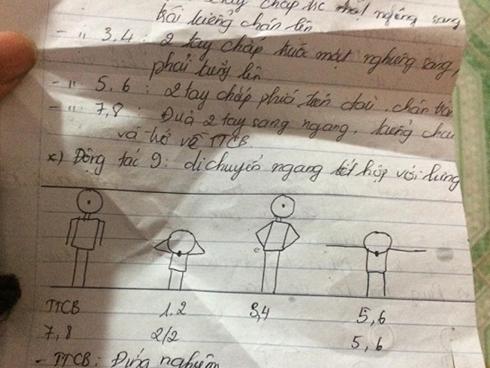 chấp trc mặt nghiêng sang
trái lườn chân lên
- " 3,4: 2 tay chấp trước mặt nghiêng sang,
phải lên
- " 5,6: 2 tay chấp phía trên đầu, chân
- " 7,8: Đưa 2 tay sang ngang,
và trở về TTCB
x) Động tác 9: di chuyển ngang kết hợp với lưng
TTCB 1.2 3,4 5,6
7,8 2/2 5,6
- TTCB: Đứng nghiêm